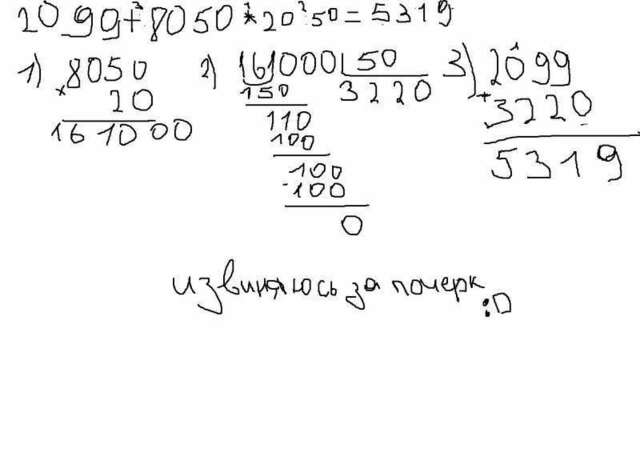 2099+8050*20:50=5319
1) 8050 2) 161000 50 3) 2099
× 20 150 3220 + 3220
161000 110 5319
100
100
- 100
0
извиняюсь за почерк :D